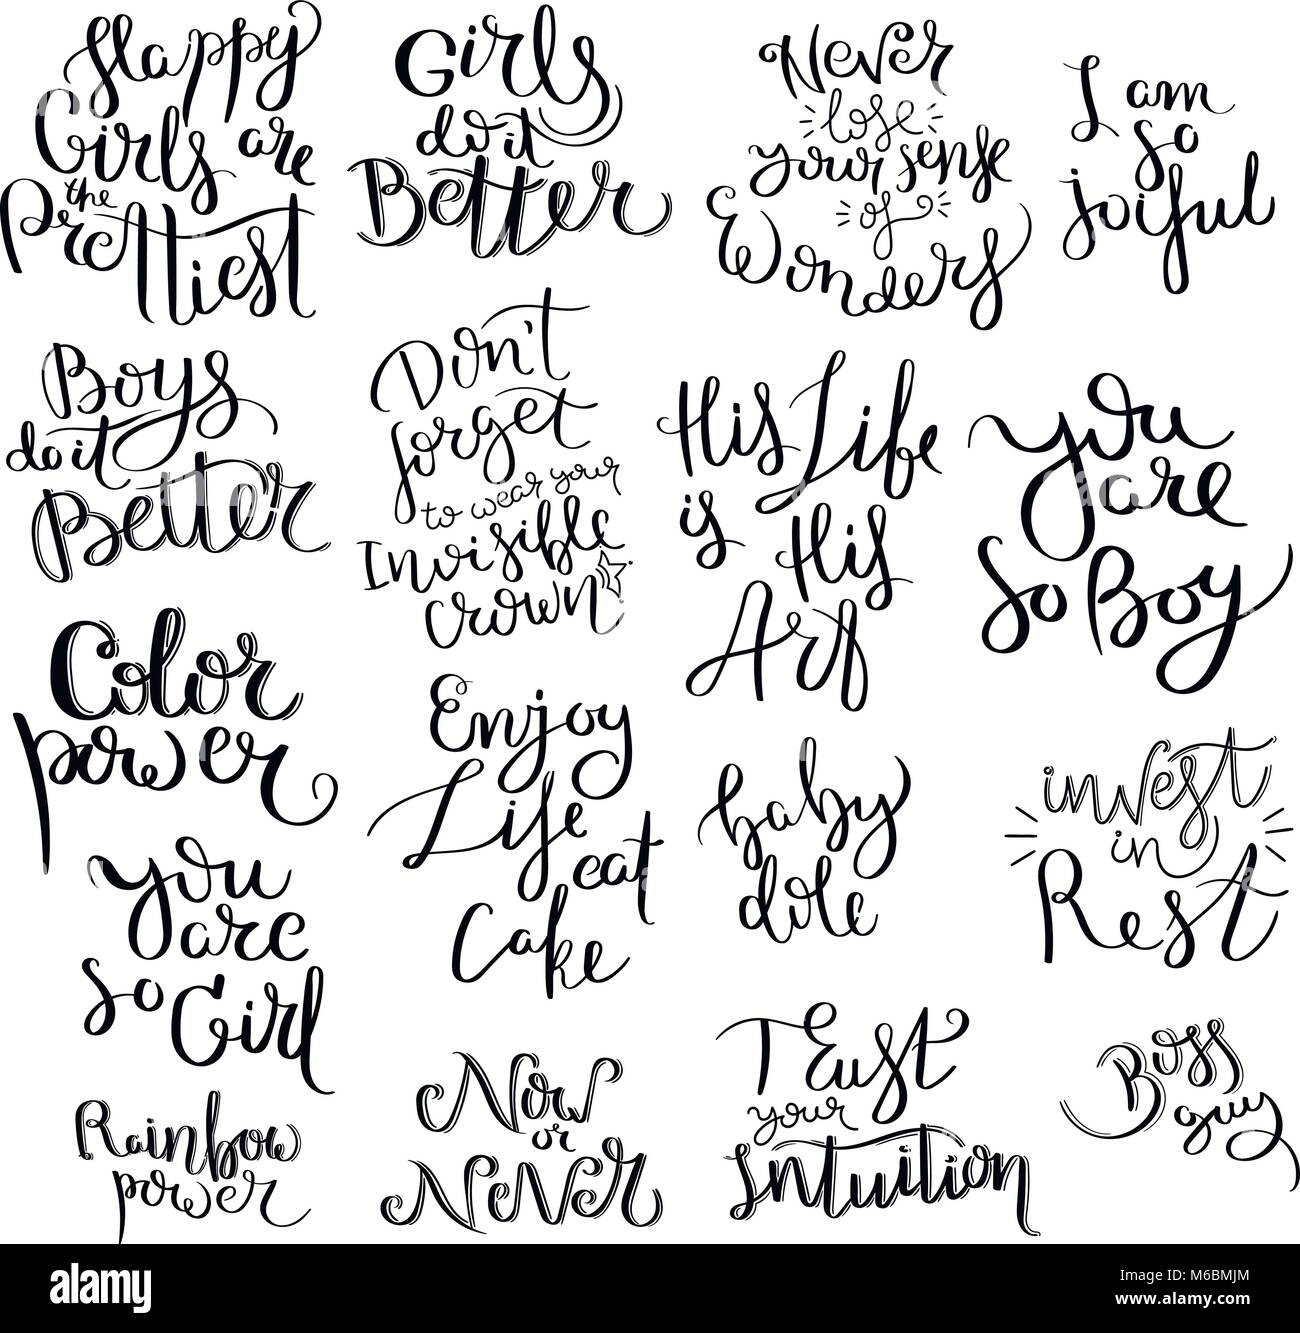 Happy
Girls are
the
Prettiest
Girls
do it
Better
Never
lose
your sense
of
Wonders
I am
so
joiful
Boys
do it
Better
Don't
forget
to wear your
Invisible
crown
His Life
is His
Art
you
are
so Boy
Color
power
Enjoy
Life
eat
Cake
baby
dole
invest
in
Rest
you
are
so Girl
Rainbow
power
Now
or
Never
Trust
your
intuition
Boss
guy
alamy
Image ID: M6BMJM
www.alamy.com